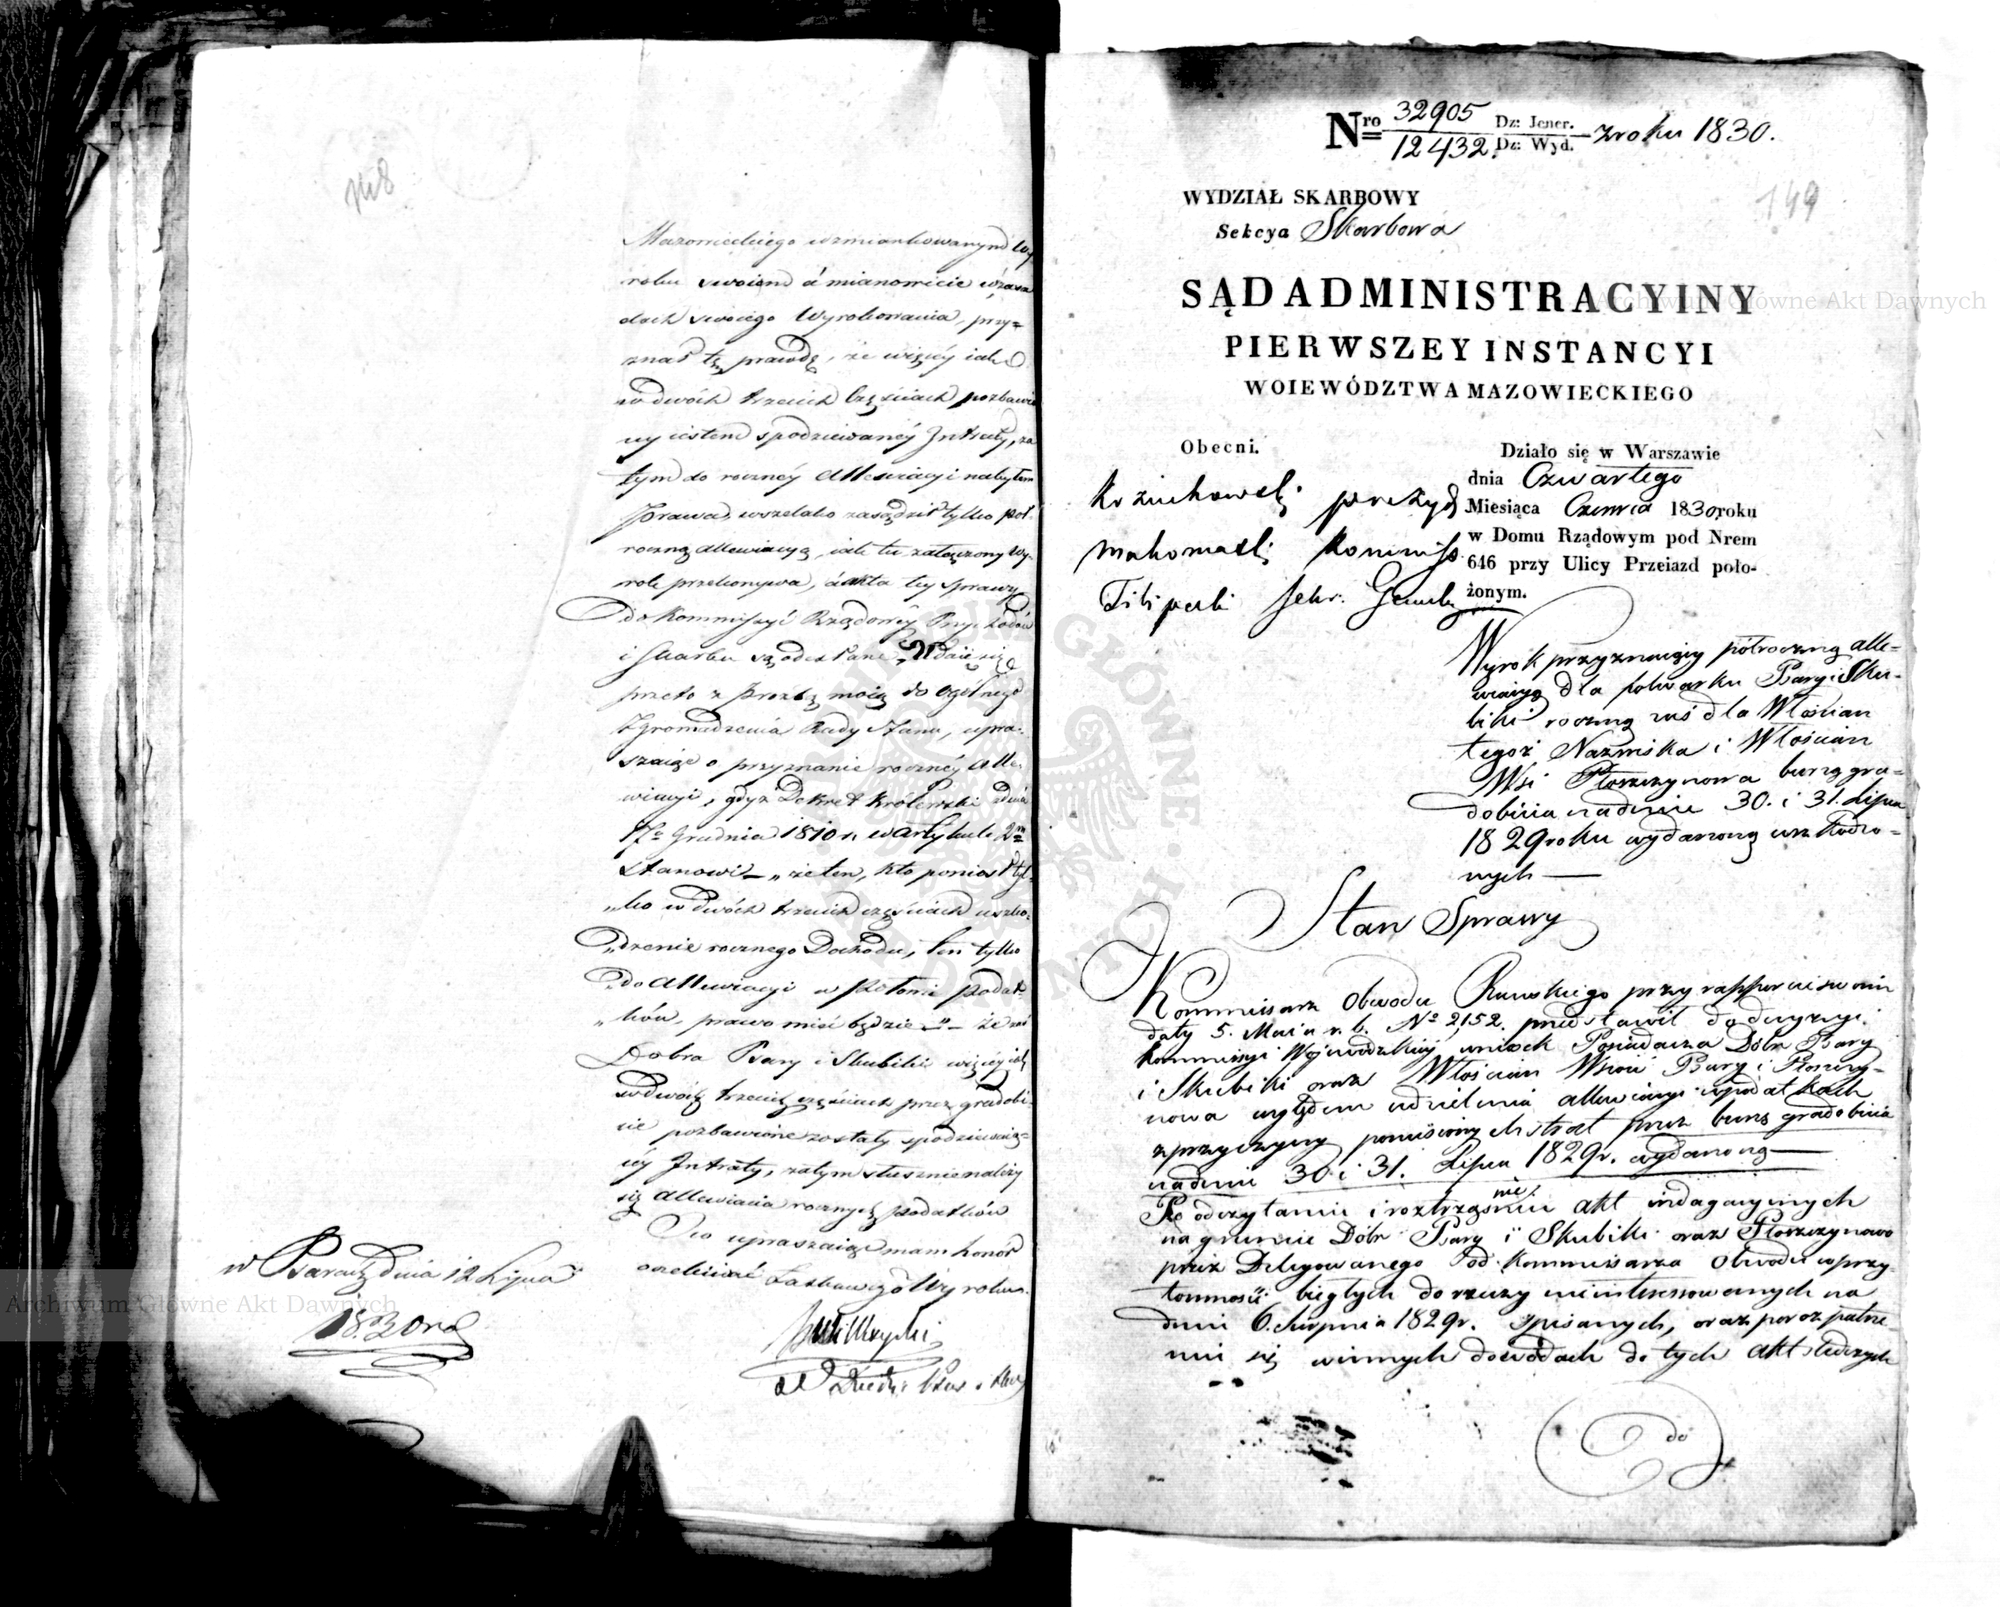 148
Mazowieckiego wzmiankowanym wy
roku swoiem á mianowicie w zasa
dach swoiego Wyrokowania, przy=
znał tę prawdę, że więcéy iak
w dwóch trzecich częściach pozbawio
ny iestem spodziewanéy Intraty, za
tym do rocznéy allewiacyi nabyłem
Prawa, wszelako zasądził tylko pół
roczną allewiacyą, iak tu załączony Wy
rok przekonywa, á akta tey sprawy
do Kommissyi Rządowéy Przychodów
i Skarbu są odesłane. Udaię się
przeto z Prozbą moią do Ogólnego
Zgromadzenia Rady Stanu, upra-
szaiąc o przyznanie rocznéy Alle
wiacyi, gdyż Dekret Królewski dnia
Grudnia 1810 r. w artykule 2m
Stanowi — „że ten, kto poniosł tyl-
„ko w dwóch trzecich częściach uszko-
„dzenie rocznego Dochodu, ten tylko
„do allewiacyi w połowie podat-
„ków, prawo mieć będzie —" — że zaś
Dobra Psary i Skubiki więcéy iak
w dwóch trzecich częściach przez gradobi-
cie pozbawione zostały spodziewaną-
éy Intraty, zatym słusznie należy
się allewiacia rocznych podatków
O co upraszaiąc mam honor
oczekiwać Łaskawego Wyroku.
w Psarach dnia 12 Lipca
1830 ro
Nro 32905 Dz: Jener. z roku 1830.
12432. Dz: Wyd.
149
WYDZIAŁ SKARBOWY
Sekcya Skarbowa
SĄD ADMINISTRACYINY
PIERWSZEY INSTANCYI
WOIEWÓDZTWA MAZOWIECKIEGO
Obecni.
Kożuchowski prezyd.
Makomaski Kommiss.
Filipecki Sekr.
Działo się w Warszawie
dnia Czwartego
Miesiąca Czerwca 1830 roku
w Domu Rządowym pod Nrem
646 przy Ulicy Przeiazd poło-
żonym.
Wyrok przyznaiący półroczną alle-
wiacyą dla folwarku Psary i Sku-
biki roczną zaś dla Włościan
tegoż Nazwiska i Włościan
Wsi Płoszczynowa burzą gra-
dobicia na dniu 30. i 31. Lipca
1829 roku wydarzoną uszkodzo-
nych —
Stan Sprawy
Kommissarz Obwodu Rawskiego przy rapporcie swoim
daty 5. Maia r. b. No 2152. przedstawił do decyzyi
Kommissyi Wojewódzkiey wniosek Posiadacza Dóbr Psary
i Skubiki oraz Włościan Wsiów Psary i Płoszczy-
nowa względem udzielenia allewiacyi w podatkach
z przyczyny poniesionych strat przez burzę gradobicia
na dniu 30 i 31. Lipca 1829 r. wydarzoną —
Po odczytaniu i roztrząśnieniu akt indagacyinych
na gruncie Dóbr Psary i Skubiki oraz Płoszczynowo
przez Delegowanego od Kommissarza Obwodu w przy-
tomności biegłych do rzeczy nieinteressowanych na
dniu 6. Sierpnia 1829 r. spisanych, oraz po rozpatrze-
niu się w innych dowodach do tych akt służących
do
Archiwum Główne Akt Dawnych
Archiwum Główne Akt Dawnych
ARCHIWUM GŁÓWNE AKT DAWNYCH